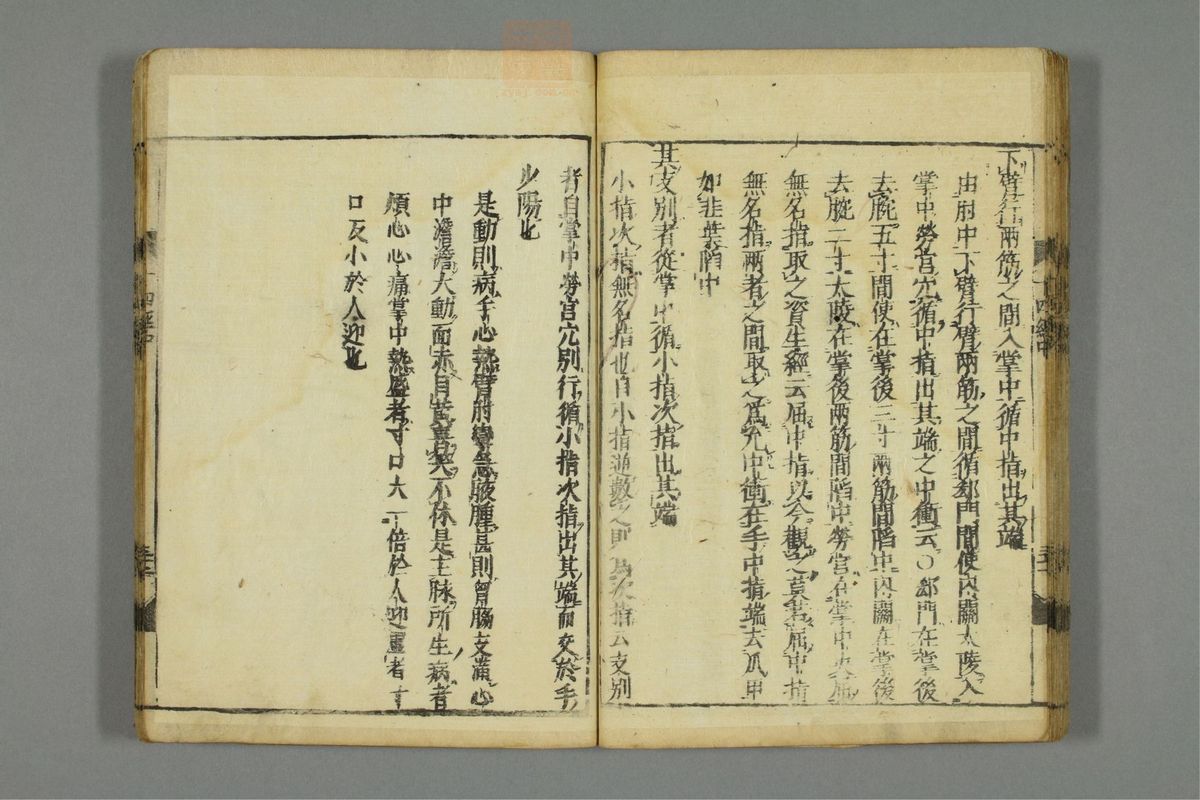 下臂行兩筋之間入掌中循中指出其端
由肘中下臂行臂兩筋之間循郄門間使內關大陵入
掌中勞宮穴循中指出其端之中衝云〇郄門在掌後
去腕五寸間使在掌後三寸兩筋間陷中內關在掌後
去腕二寸大陵在掌後兩筋間陷中勞宮在掌中央屈
無名指取之資生經云屈中指以今觀之莫若屈中指
無名指兩者之間取之爲允中衝在手中指端去爪甲
如韭葉陷中
其支別者從掌中循小指次指出其端
小指次指無名指也自小指逆數之則爲次指云支別
者自掌中勞宮穴別行循小指次指出其端而交於手
少陽也
是動則病手心熱臂肘攣急腋腫甚則胷脇支滿心
中澹澹大動面赤目黃喜笑不休是主脉所生病者
煩心心痛掌中熱盛者寸口大一倍於人迎虛者寸
口反小於人迎也
四經中